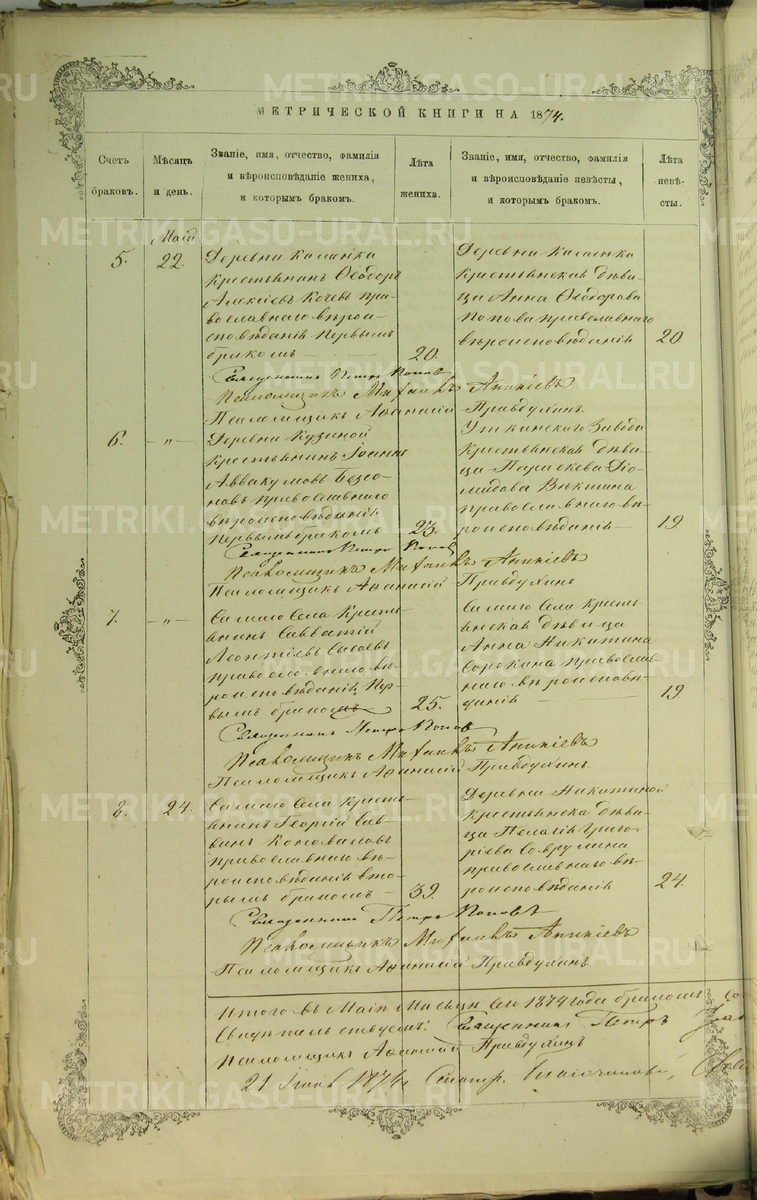 МЕТРИЧЕСКОЙ КНИГИ НА 1874.
Счетъ браковъ.
Мѣсяцъ и день.
Званіе, имя, отчество, фамилія
и вѣроисповѣданіе жениха,
и которымъ бракомъ.
Лѣта
жениха.
Званіе, имя, отчество, фамилія
и вѣроисповѣданіе невѣсты,
и которымъ бракомъ.
Лѣта
невѣ-
сты.
Маій
5.
22.
Деревни Каменки
крестьянинъ Ѳеодоръ
Алексіевъ Кочевъ пра-
вославнаго вѣрои-
сповѣданія первымъ
бракомъ
20.
Деревни Каменки
крестьянская дѣви-
ца Анна Ѳеодорова
Попова православнаго
вѣроисповѣданія
20
Священникъ Петръ Поповъ
Псаломщикъ Михаилъ Ананіевъ
Псаломщикъ Аѳанасій Правдухинъ.
6.
-"-
Деревни Кузиной
крестьянинъ Іоаннъ
Аввакумовъ Безсо-
новъ православнаго
вѣроисповѣданія
первымъ бракомъ
23.
Уткинскаго Завода
крестьянская дѣви-
ца Параскева Діо-
мидова
православнаго вѣ-
роисповѣданія
19
Священникъ Петръ Поповъ
Псаломщикъ Михаилъ Ананіевъ
Псаломщикъ Аѳанасій Правдухинъ
7.
-"-
Самаго Села кресть-
янинъ Савватій
Леонтіевъ Сысоевъ
православнаго вѣ-
роисповѣданія пер-
вымъ бракомъ
25.
Самаго Села кресть-
янская дѣвица
Анна Никитина
Сорокина православ-
наго вѣроисповѣ-
данія
19
Священникъ Петръ Поповъ
Псаломщикъ Михаилъ Ананіевъ
Псаломщикъ Аѳанасій Правдухинъ.
8.
24.
Самаго Села кресть-
янинъ Георгій Сав-
винъ Коноваловъ
православнаго вѣ-
роисповѣданія вто-
рымъ бракомъ
39.
Деревни Никитиной
крестьянска дѣви-
ца Пелагія Григо-
ріева
православнаго вѣ-
роисповѣданія
24.
Священникъ Петръ Поповъ
Псаломщикъ Михаилъ Ананіевъ
Псаломщикъ Аѳанасій Правдухинъ.
Итого въ Маіѣ мѣсяцѣ сего 1874 года бракомъ
Свидѣтельствуемъ: Священникъ Петръ
Псаломщикъ Аѳанасій Правдухинъ
METRIKI.GASO-URAL.RU